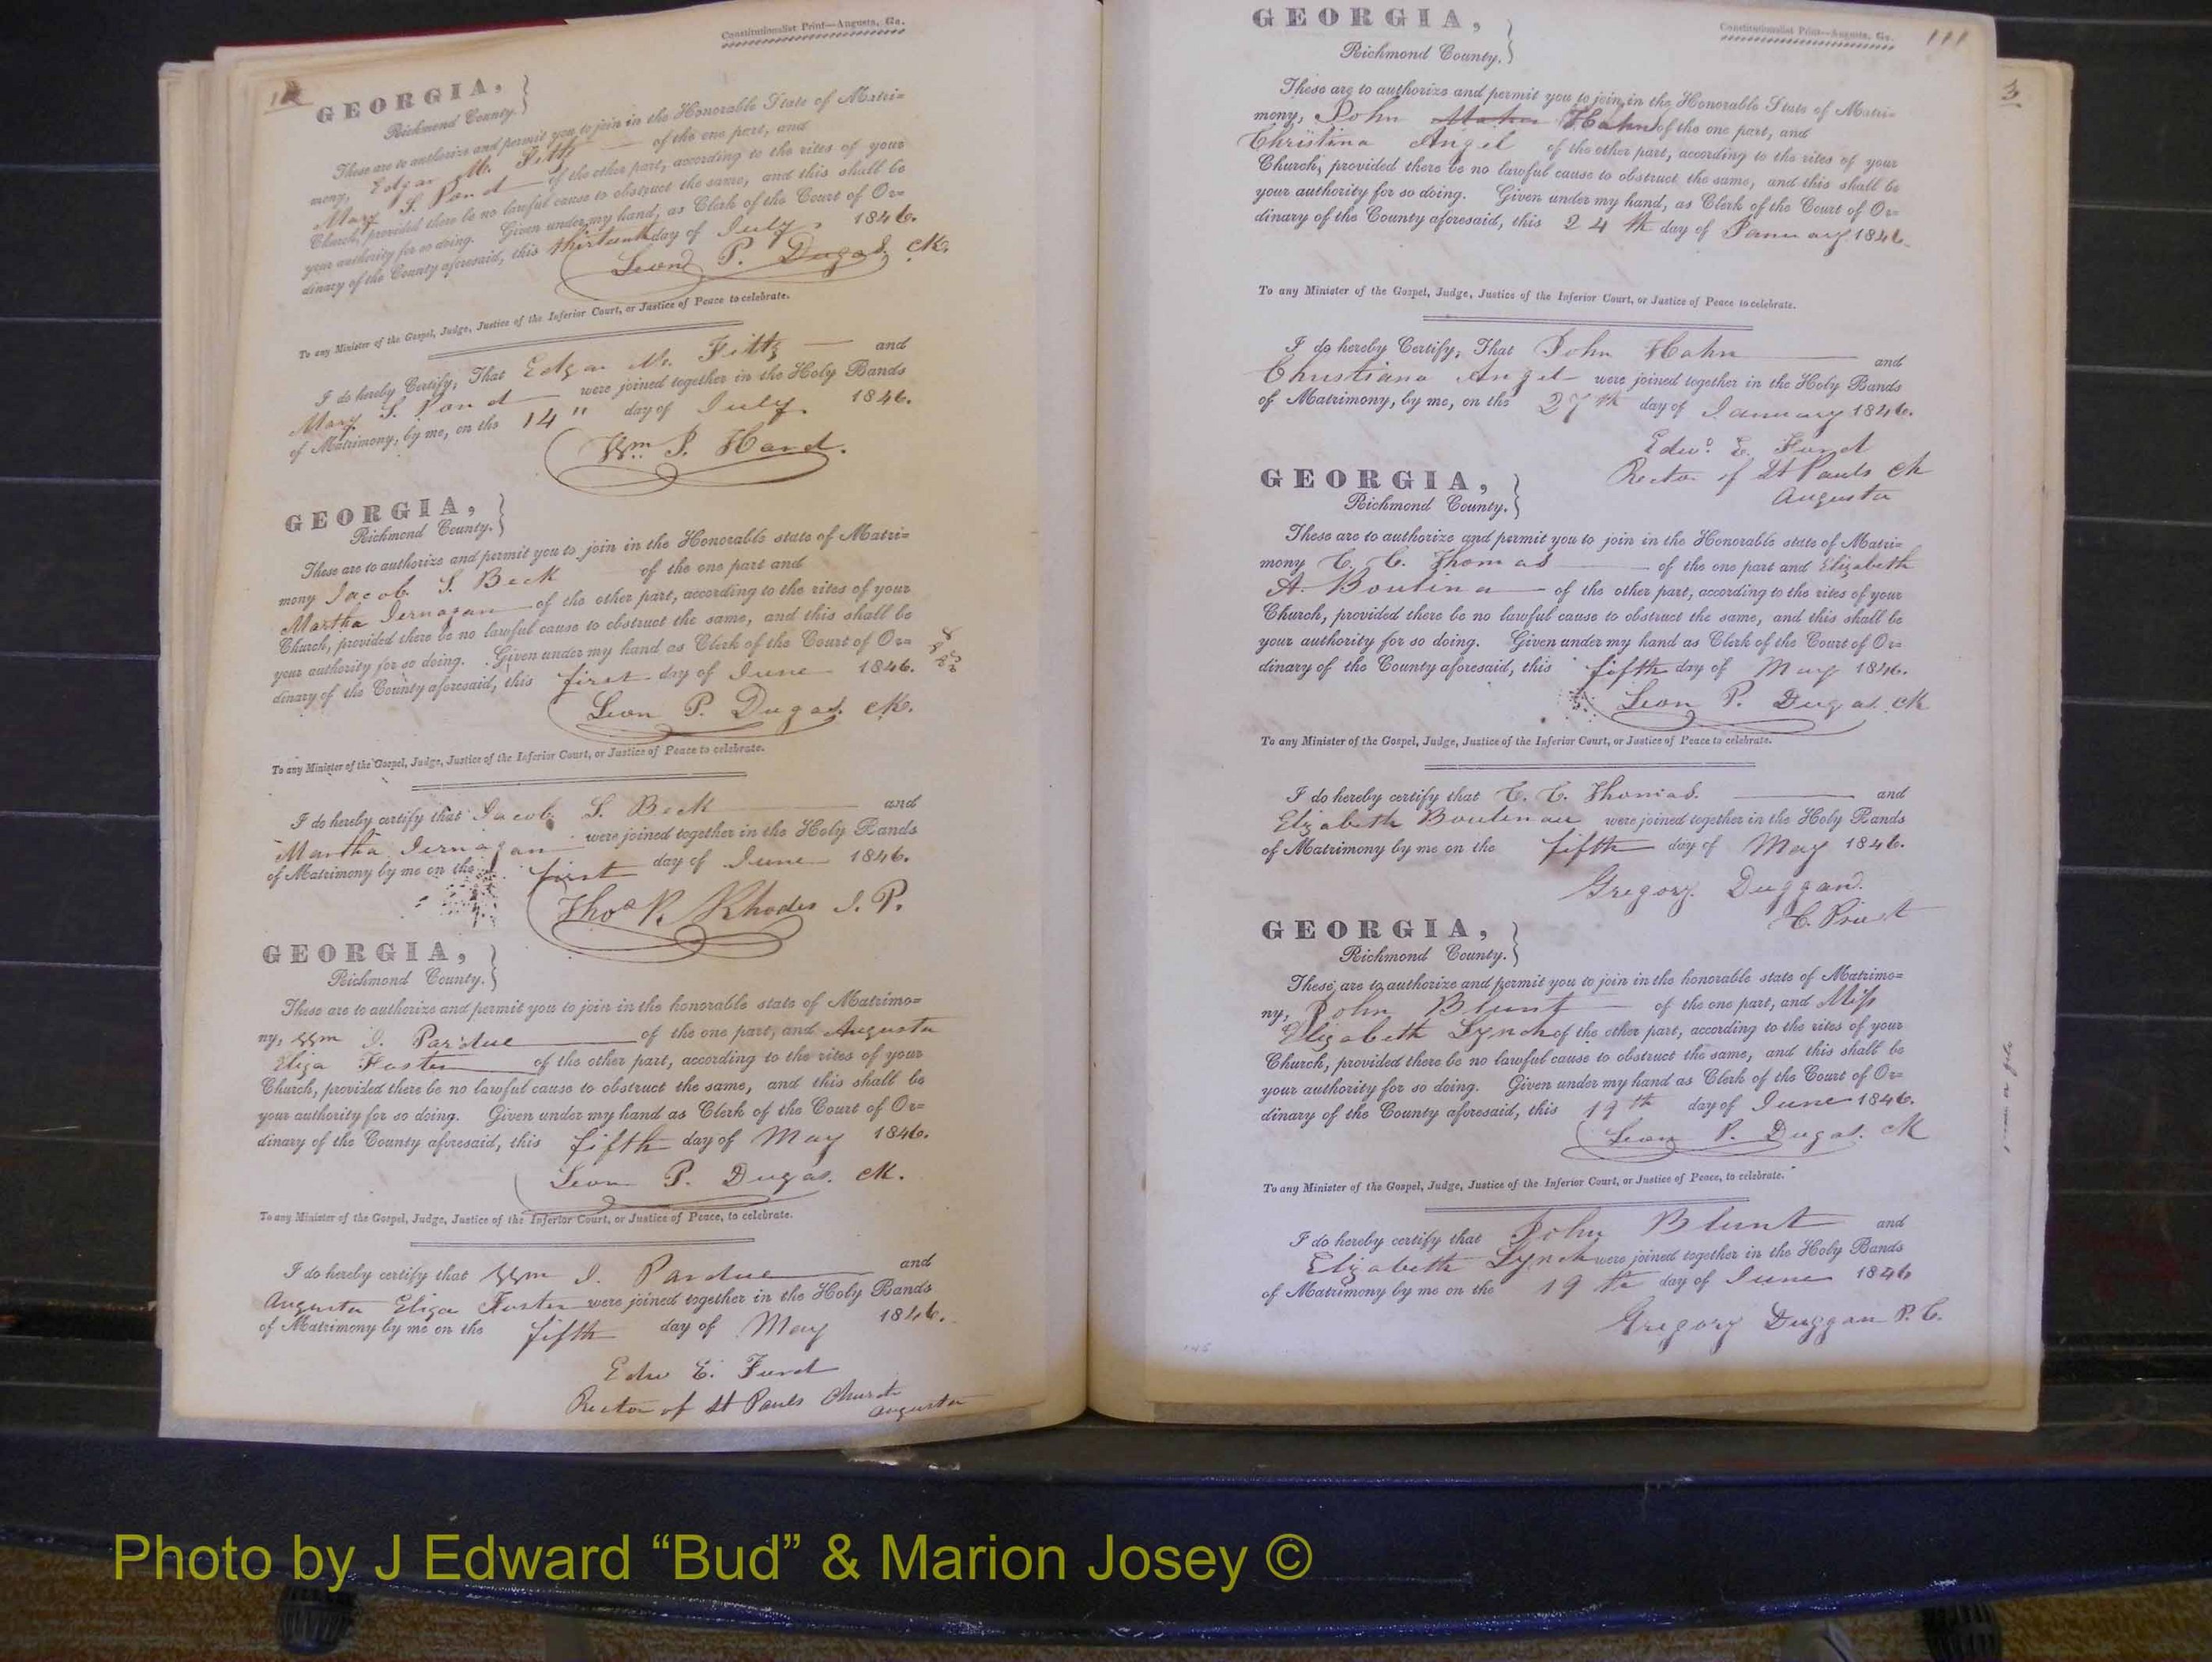 Constitutionalist Print—Augusta, Ga.
GEORGIA,
Richmond County.
These are to authorize and permit you to join in the Honorable State of Matri=
mony, Edgar M. Fitts of the one part, and
Mary S. Pond of the other part, according to the rites of your
Church, provided there be no lawful cause to obstruct the same, and this shall be
your authority for so doing. Given under my hand, as Clerk of the Court of Or=
dinary of the County aforesaid, this thirteenth day of July 1846.
Leon P. Dugas. Clk.
To any Minister of the Gospel, Judge, Justice of the Inferior Court, or Justice of Peace to celebrate.
I do hereby Certify, That Edgar M. Fitts and
Mary S. Pond were joined together in the Holy Bands
of Matrimony, by me, on the 14" day of July. 1846.
Wm. J. Hard.
GEORGIA,
Richmond County.
These are to authorize and permit you to join in the Honorable state of Matri=
mony Jacob. S. Beck of the one part and
Martha Jernagan of the other part, according to the rites of your
Church, provided there be no lawful cause to obstruct the same, and this shall be
your authority for so doing. Given under my hand as Clerk of the Court of Or=
dinary of the County aforesaid, this first day of June 1846.
Leon P. Dugas. Clk.
To any Minister of the Gospel, Judge, Justice of the Inferior Court, or Justice of Peace to celebrate.
I do hereby certify that Jacob. S. Beck and
Martha Jernagan were joined together in the Holy Bands
of Matrimony by me on the first day of June 1846.
Thos. R. Rhodes J. P.
GEORGIA,
Richmond County.
These are to authorize and permit you to join in the honorable state of Matrimo=
ny, Wm J. Pardue of the one part, and Augusta
Eliza Foster of the other part, according to the rites of your
Church, provided there be no lawful cause to obstruct the same, and this shall be
your authority for so doing. Given under my hand as Clerk of the Court of Or=
dinary of the County aforesaid, this fifth day of May 1846.
Leon P. Dugas. Clk.
To any Minister of the Gospel, Judge, Justice of the Inferior Court, or Justice of Peace, to celebrate.
I do hereby certify that Wm J. Pardue and
Augusta Eliza Foster were joined together in the Holy Bands
of Matrimony by me on the fifth day of May 1846.
Edw E. Ford
Rector of St Pauls Church
Augusta
Constitutionalist Print—Augusta, Ga. 111
GEORGIA,
Richmond County.
These are to authorize and permit you to join in the Honorable State of Matri=
mony, John Hahn of the one part, and
Christina Angel of the other part, according to the rites of your
Church, provided there be no lawful cause to obstruct the same, and this shall be
your authority for so doing. Given under my hand, as Clerk of the Court of Or=
dinary of the County aforesaid, this 24th day of January 1846.
To any Minister of the Gospel, Judge, Justice of the Inferior Court, or Justice of Peace to celebrate.
I do hereby Certify, That John Hahn and
Christiana Angel were joined together in the Holy Bands
of Matrimony, by me, on the 27th day of January 1846.
Edwd. E. Ford
Rector of St Pauls Ch
Augusta
GEORGIA,
Richmond County.
These are to authorize and permit you to join in the Honorable state of Matri=
mony C. C. Thomas of the one part and Elizabeth
A. Boulina of the other part, according to the rites of your
Church, provided there be no lawful cause to obstruct the same, and this shall be
your authority for so doing. Given under my hand as Clerk of the Court of Or=
dinary of the County aforesaid, this fifth day of May 1846.
Leon P. Dugas. Clk
To any Minister of the Gospel, Judge, Justice of the Inferior Court, or Justice of Peace to celebrate.
I do hereby certify that C. C. Thomas. and
Elizabeth Boulinau were joined together in the Holy Bands
of Matrimony by me on the fifth day of May 1846.
Gregory Duggan.
C. Priest
GEORGIA,
Richmond County.
These are to authorize and permit you to join in the honorable state of Matrimo=
ny, John Blunt of the one part, and Miss
Elizabeth Lynch of the other part, according to the rites of your
Church, provided there be no lawful cause to obstruct the same, and this shall be
your authority for so doing. Given under my hand as Clerk of the Court of Or=
dinary of the County aforesaid, this 19th day of June 1846.
Leon P. Dugas. Clk
To any Minister of the Gospel, Judge, Justice of the Inferior Court, or Justice of Peace, to celebrate.
I do hereby certify that John Blunt and
Elizabeth Lynch were joined together in the Holy Bands
of Matrimony by me on the 19th day of June 1846
Gregory Duggan P. C.
3
Photo by J Edward “Bud” & Marion Josey ©